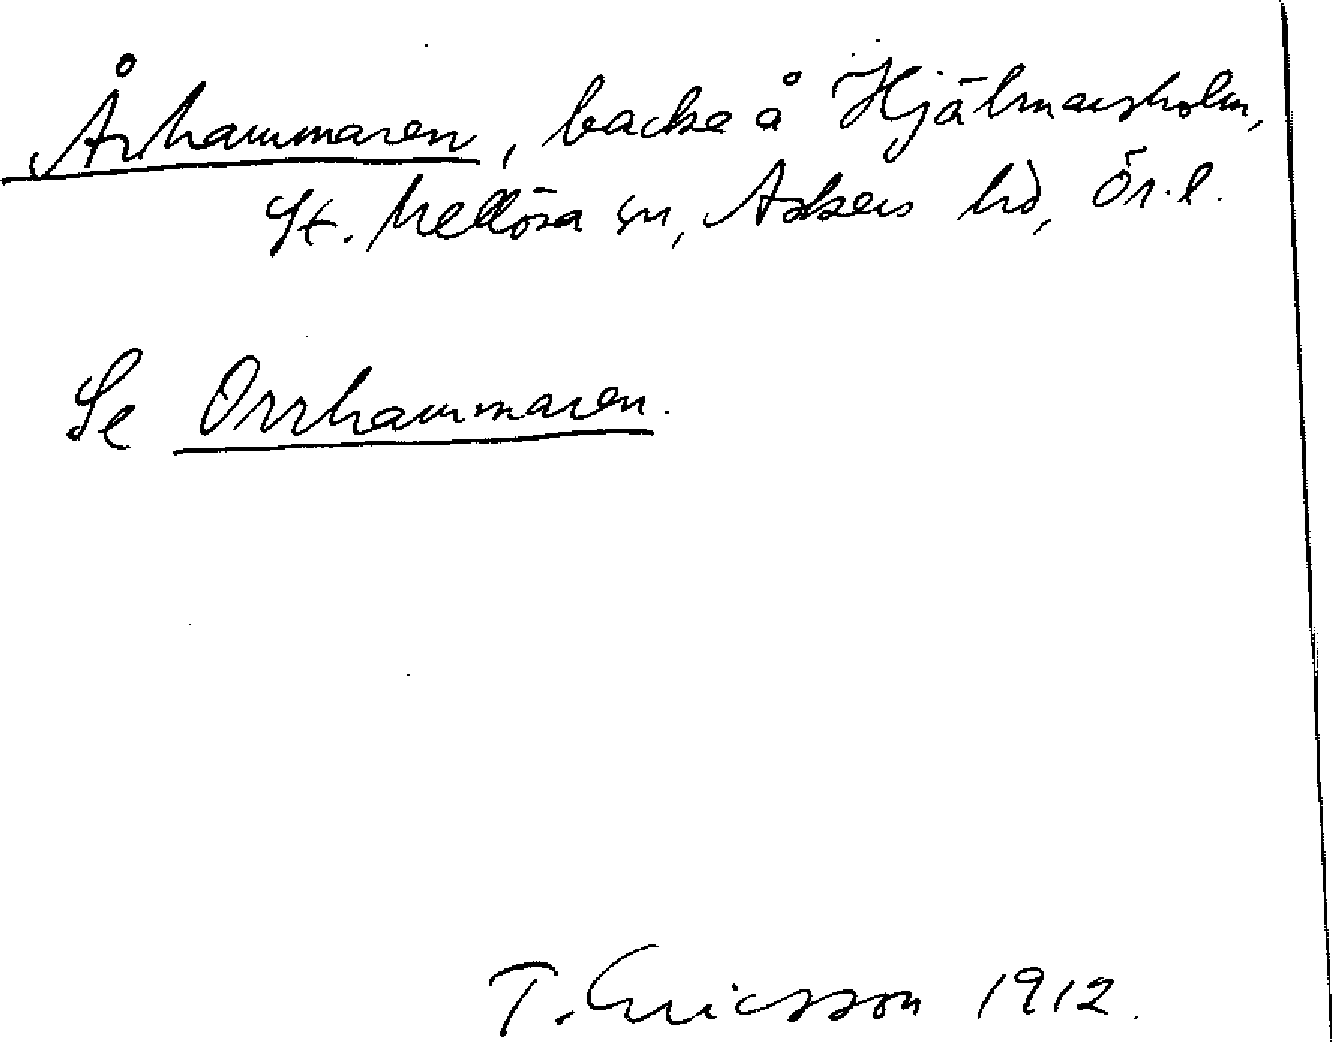 Århammaren, backe å Hjälmarsholm,
St. Mellösa sn, Askers hd, Ör. l.
Se Orrhammaren.
T. Ericsson 1912.